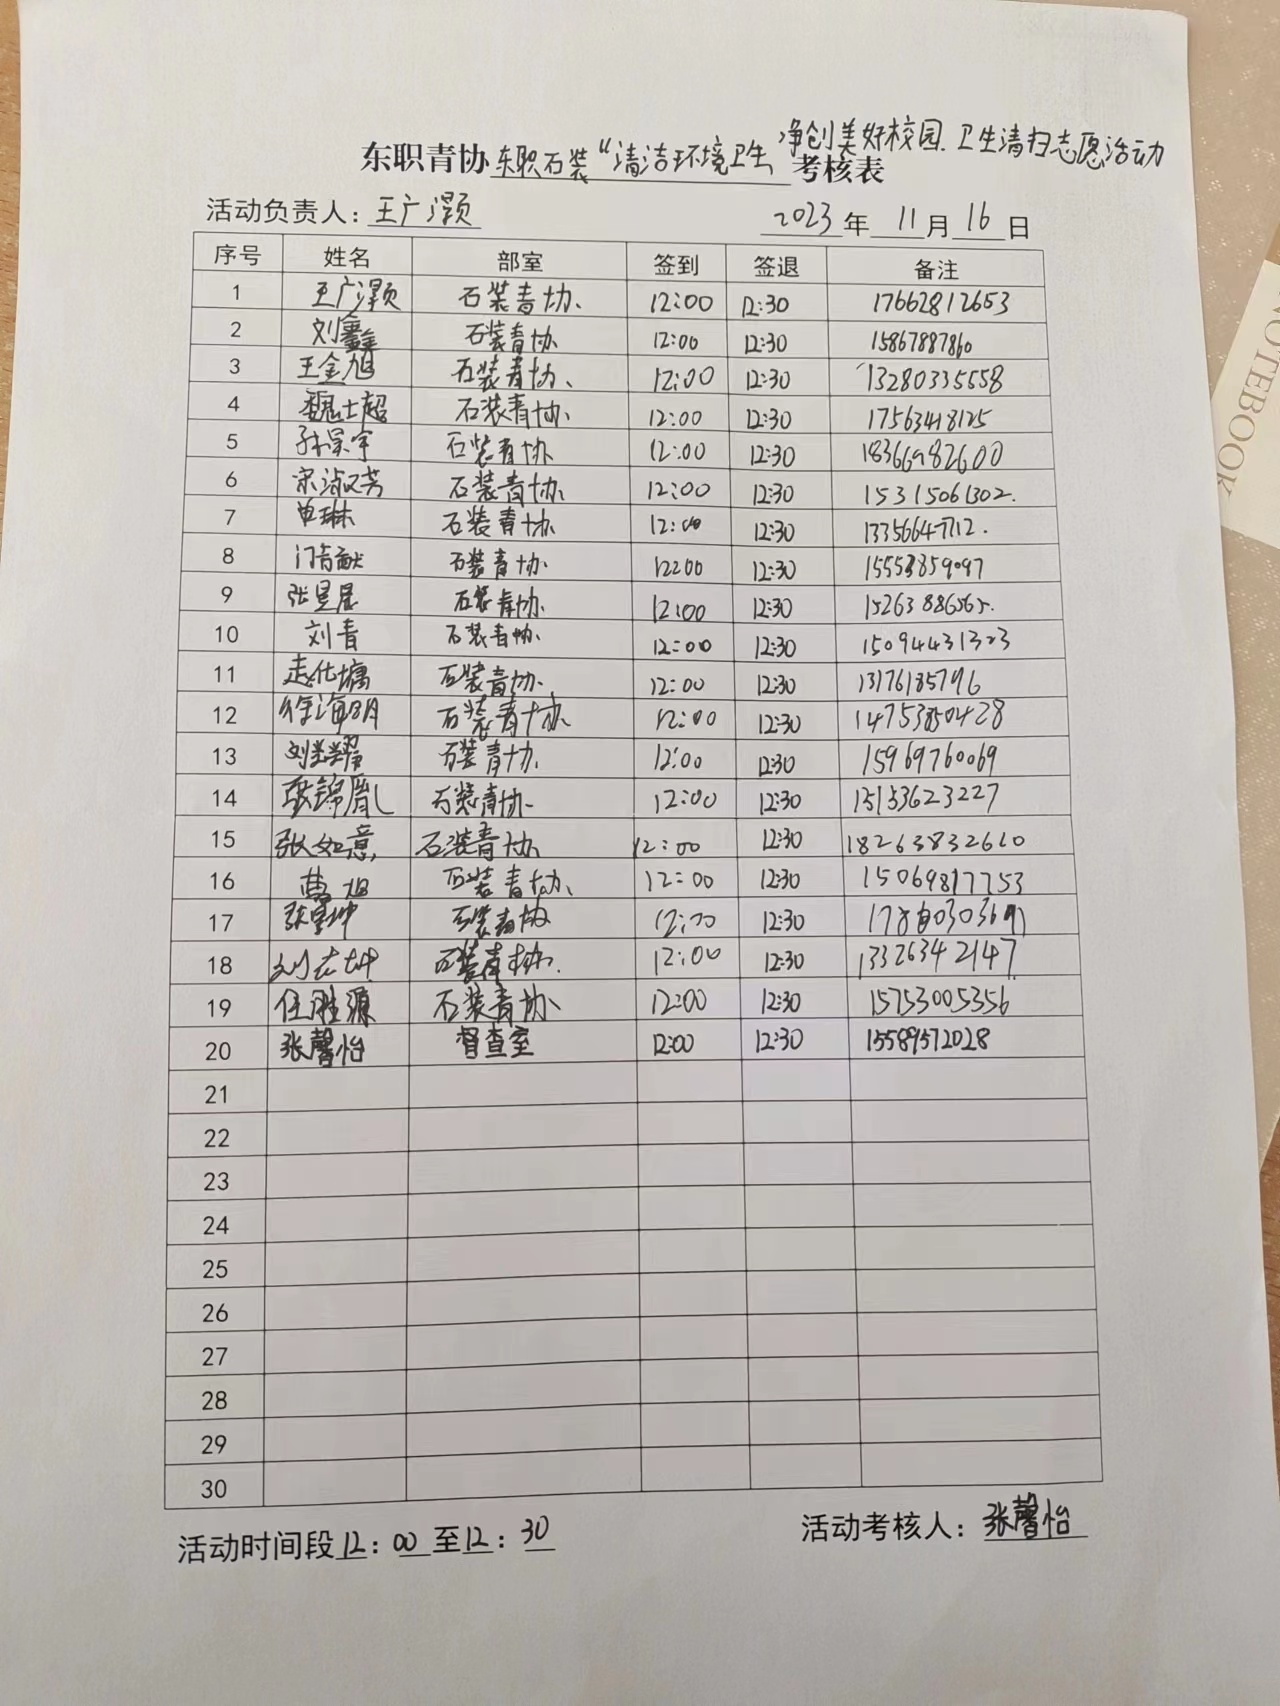 净创美好校园.卫生清扫志愿活动
东职青协东职石装“清洁环境卫生, 考核表
活动负责人：王广灏 2023年 11月 16日
序号 姓名 部室 签到 签退 备注
1 王广灏 石装青协. 12:00 12:30 17662812653
2 刘鑫 石装青协 12:00 12:30 15867887860
3 王金旭 石装青协、 12:00 12:30 13280335558
4 魏士超 石装青协. 12:00 12:30 17563418125
5 孙景宇 石装青协 12:00 12:30 18366982600
6 宋淑芳 石装青协. 12:00 12:30 15315061302.
7 单琳 石装青协 12:00 12:30
8 石装青协. 12:00 12:30 15553859097
9 张昱晨 石装青协. 12:00 12:30 15263886565.
10 刘青 石装青协. 12:00 12:30 15094431323
11 石装青协. 12:00 12:30 13176185796
12 徐海明 石装青协. 12:00 12:30 14753850428
13 石装青协. 12:00 12:30 15969760069
14 石装青协. 12:00 12:30 15153623227
15 张如意, 石装青协 12:00 12:30 18263832610
16 曹旭 石装青协、 12:00 12:30 15069817753
17 石装青协 12:00 12:30
18 刘志坤 石装青协. 12:00 12:30 13326342147
19 任胜源 石装青协. 12:00 12:30 15753005356
20 张馨怡 督查室 12:00 12:30 15589572028
21
22
23
24
25
26
27
28
29
30
活动时间段12：00至12：30 活动考核人：张馨怡
NOTEBOOK